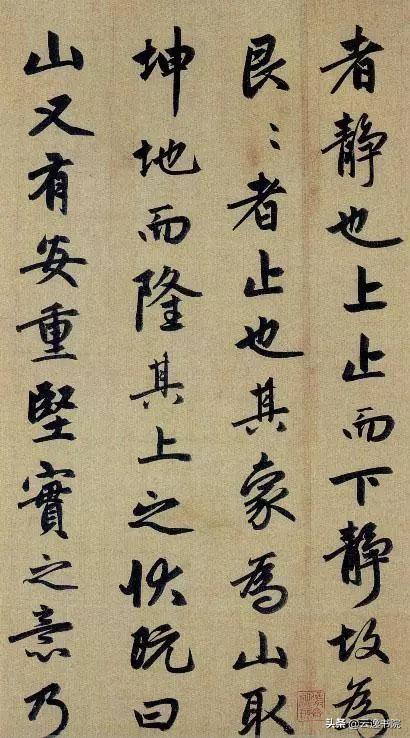 者静也上止而下静故為
艮〻者止也其象為山取
坤地而隆其上之状既曰
山又有安重堅實之意乃
头条 @云逸书院